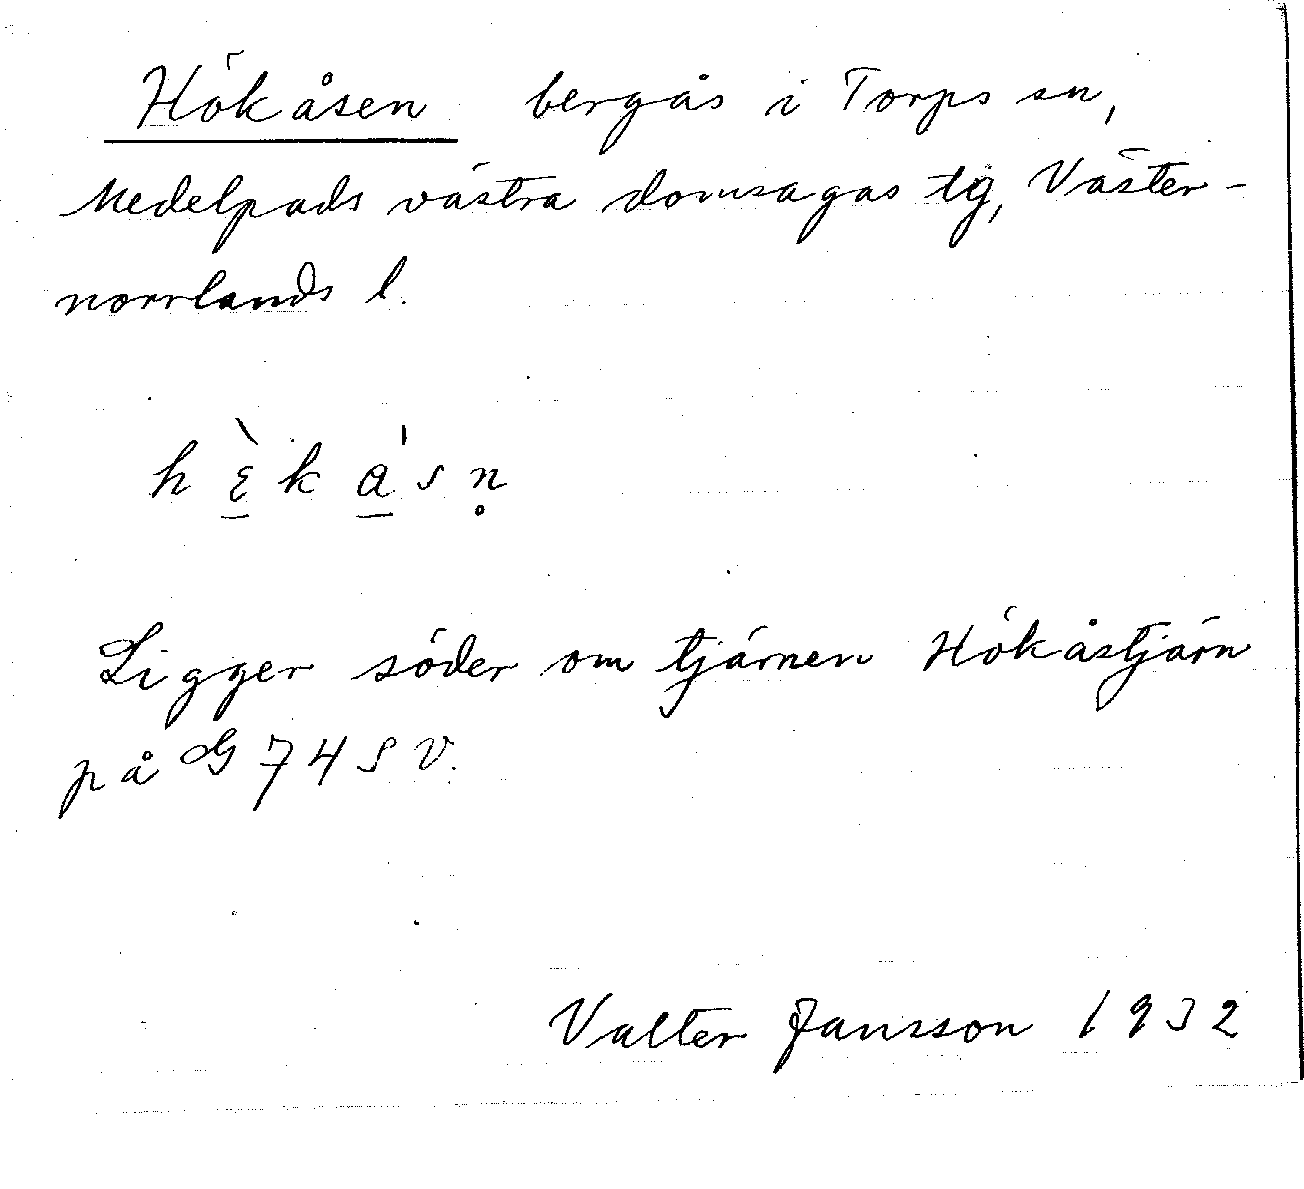 Hökåsen bergås i Torps sn,
Medelpads västra domsagas tg, Väster-
norrlands l.
h ɛ̠̀ k a̠ ́ s n̥
Ligger söder om tjärnen Hökåstjärn
på G 74 S V.
Valter Jansson 1932